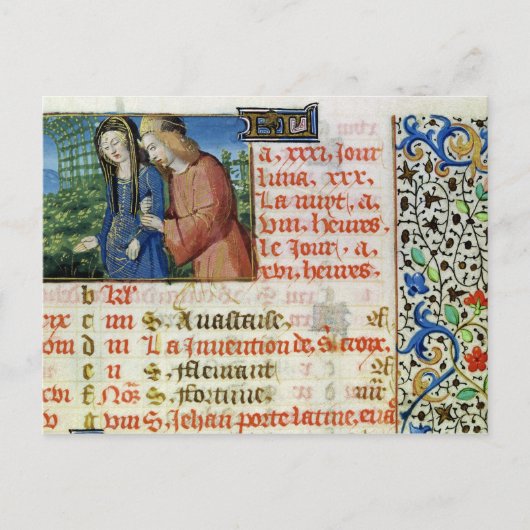 a, xxxi, Jour
luna, xxx,
La nuyt, a
viii, heures,
le Jour, a
xvi, heures,
b kl
xix c iiii S, Anastaise,
viii d iii La invention de, S, croix,
e ii S, Flemant
xvi f Nos S, Fortune, iiii
g viii S, Jehan porte latine, eua